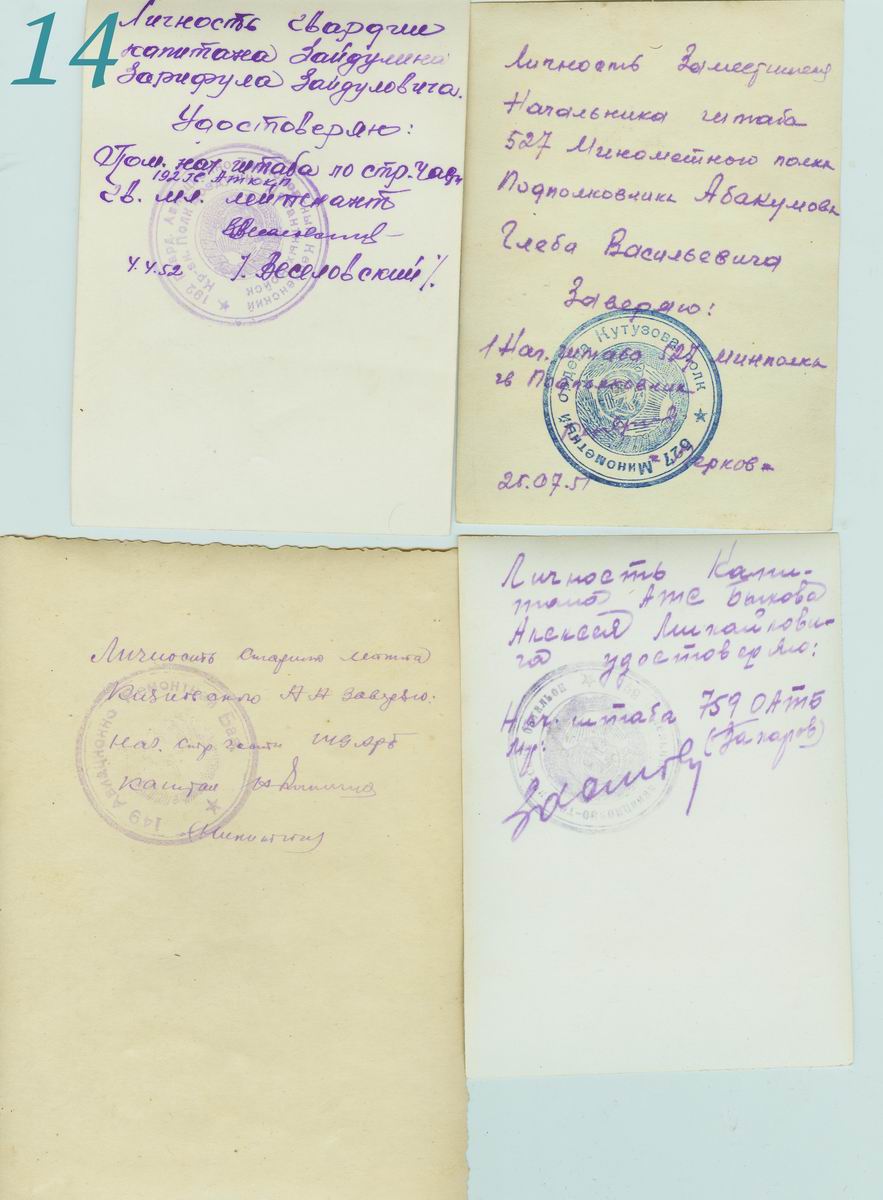 14
Личность гвардии
капитана Зайдулина
Зарифула Зайдуловича.
Удостоверяю:
Пом. нач. штаба по стр. части
192 гв.
Гв. мл. лейтенант
4.4.52 /. Веселовский /.
Личность Заместителя
Начальника штаба
527 Минометного полка
Подполковника Абакумова
Глеба Васильевича
Заверяю:
Нач. штаба 527 минполка
гв Подполковник
ерков
07.51
527 Минометный ордена Кутузова полк
Личность старшего лейт-та
А Н Заверяю:
Нач. стр. части 149 АРБ
капитан
149 Авиационно
Личность Капи-
тана АТС Быкова
Алексея Михайлови-
ча удостоверяю:
Нач. штаба 759 ОАТБ
(Захаров)